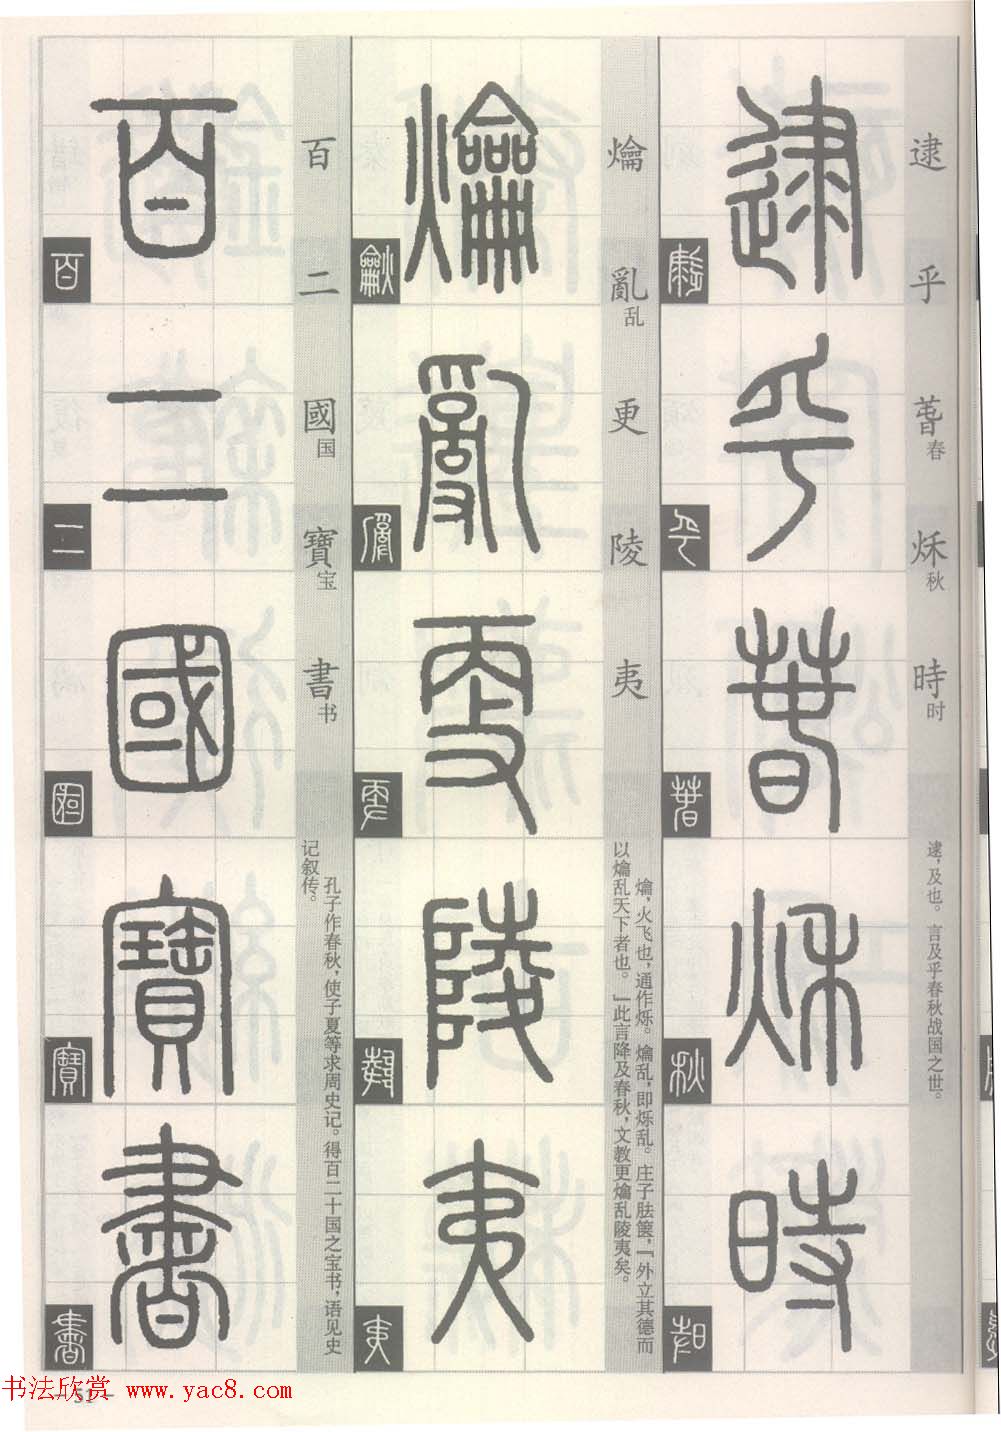 逮乎萅春秌秋時时
逮乎萅秌時
逮,及也。言及乎春秋战国之世。
爚亂乱更陵夷
爚亂更陵夷
爚,火飞也,通作烁。爚乱,即烁乱。庄子胠箧,「外立其德而
以爚乱天下者也。」此言降及春秋,文教更爚乱陵夷矣。
百二國国寶宝書书
百二國寶書
孔子作春秋,使子夏等求周史记。得百二十国之宝书,语见史
记叙传。
- 51 -
书法欣赏 www.yac8.com